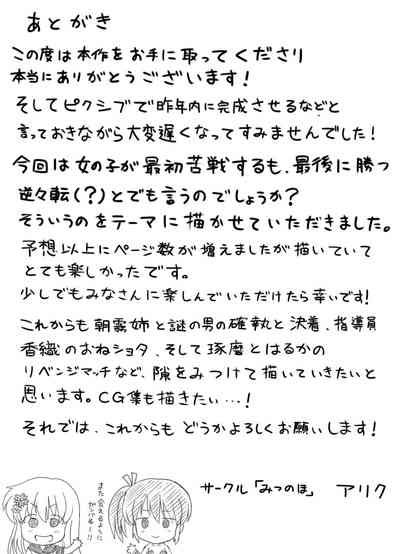 あとがき
この度は本作をお手に取ってくださり
本当にありがとうございます!
そしてピクシブで昨年内に完成させるなどと
言っておきながら大変遅くなってすみませんでした!
今回は女の子が最初苦戦するも、最後に勝つ
逆々転(?)とでも言うのでしょうか?
そういうのをテーマに描かせていただきました。
予想以上にページ数が増えましたが描いていて
とても楽しかったです。
少しでもみなさんに楽しんでいただけたら幸いです!
これからも朝霧姉と謎の男の確執と決着、指導員
香織のおねショタ、そして琢磨とはるかの
リベンジマッチなど、隙をみつけて描いていきたいと
思います。CG集も描きたい…!
それでは、これからもどうかよろしくお願いします!
また会えるように
ガンバルー!!
サークル「みつのほ」 アリク